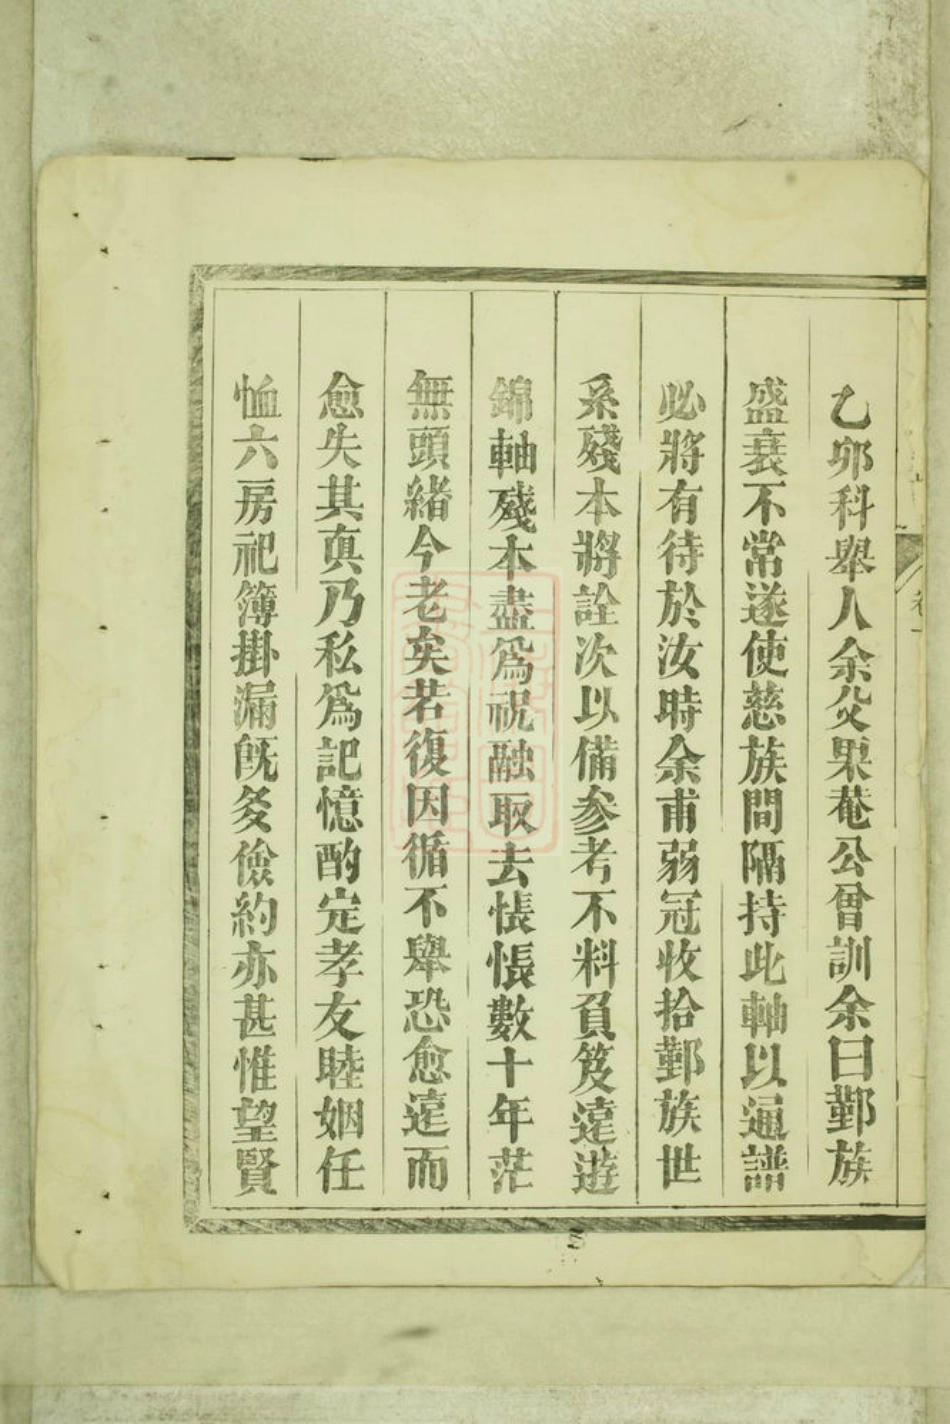 乙卯科舉人余父果菴公曾訓余曰鄞族
盛衰不常遂使慈族間隔持此軸以通譜
必將有待於汝時余甫弱冠收拾鄞族世
系殘本將詮次以備参考不料負笈遠遊
錦軸殘本盡爲祝融取去悵悵數十年茫
無頭緒今老矣若復因循不舉恐愈遠而
愈失其眞乃私爲記憶酌定孝友睦婣任
恤六房祀簿掛漏旣多儉約亦甚惟望賢
卷一